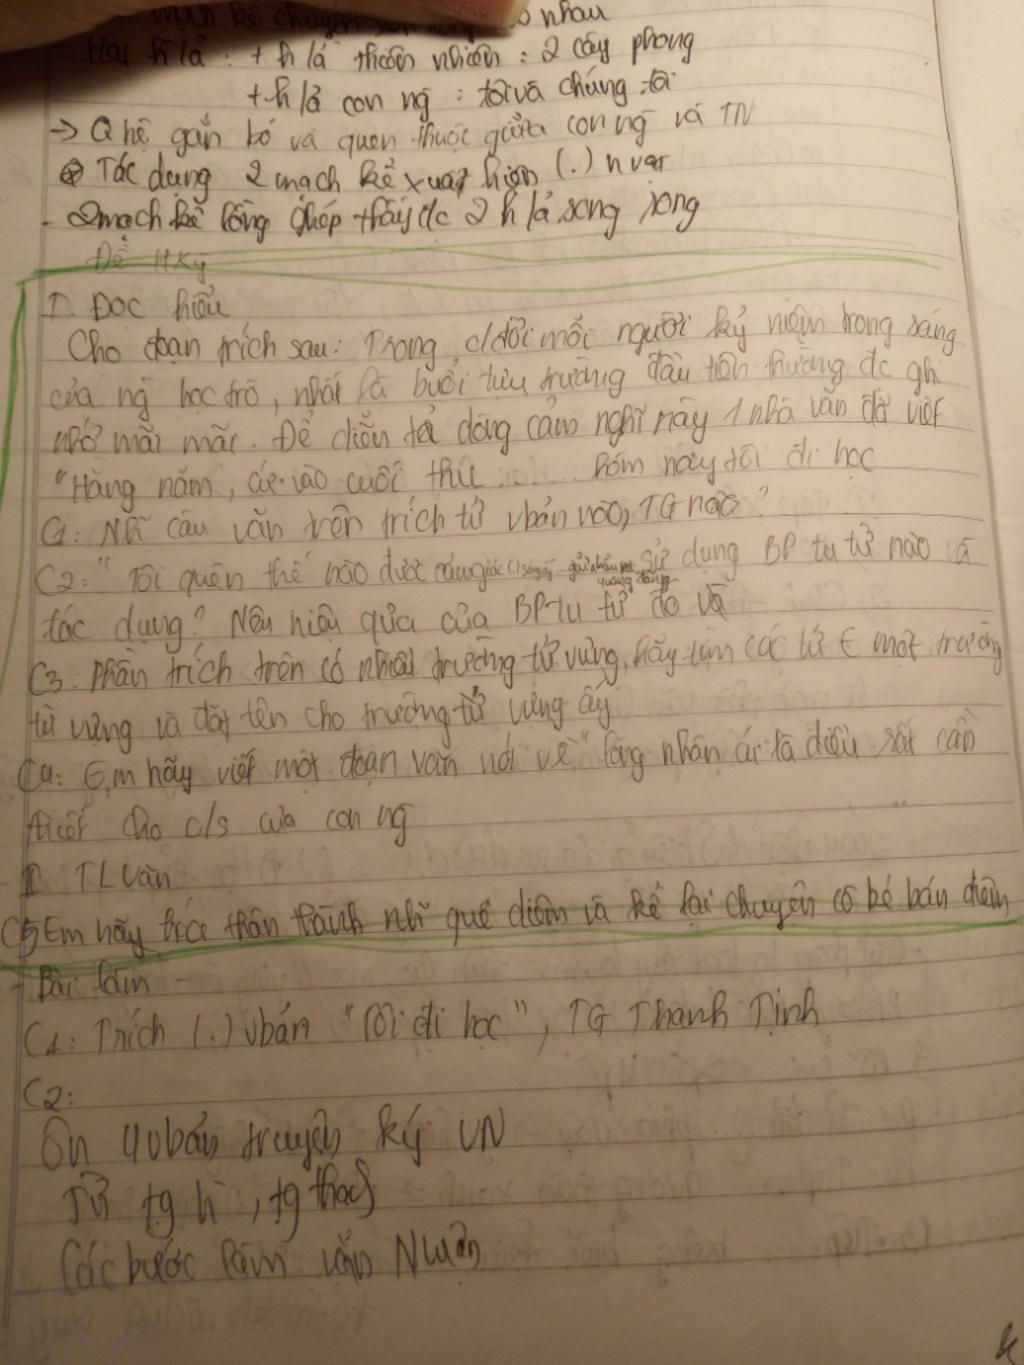 mạch kể chuyện nhau
Hai h/ả : + h/ả thiên nhiên : 2 cây phong
+ h/ả con ng : tôi và chúng tôi
-> Q hệ gắn bó và quen thuộc giữa con ng và TN
Tác dụng 2 mạch kể xuất hiện (.)
- 2 mạch kể lồng ghép thấy đc 2 h/ả song song
Đề HKỳ
I Đọc hiểu
Cho đoạn trích sau: Trong c/đời mỗi người kỷ niệm trong sáng
của ng học trò, nhất là buổi tựu trường đầu tiên thường đc ghi
nhớ mãi mãi. Để diễn tả dòng cảm nghĩ này 1 nhà văn đã viết
"Hàng năm, cứ vào cuối thu ...... hôm nay tôi đi học
C1: Nh~ câu văn trên trích từ vbản nào, TG nào?
C2: "Tôi quên thế nào được cảm giác sử dụng BP tu từ nào và
quang đãng
tác dụng? Nêu hiệu qủa của BP tu từ đó và
C3: Phần trích trên có nhiều trường từ vựng, hãy tìm các từ ∈ một trường
từ vựng và đặt tên cho trường từ vựng ấy
C4: Em hãy viết một đoạn văn nói về "lòng nhân ái là điều rất cần
thiết cho c/s của con ng
II TLVăn
C5 Em hãy hóa thân thành nh~ quê diêm và kể lại chuyện cô bé bán diêm
- Bài làm
C1: Trích (.) vbản "Tôi đi học", TG Thanh Tịnh
C2:
Ôn 4 vbản truyện ký VN
Từ tg h, tg thah
Các bước làm văn